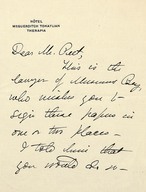 HÔTEL
MEGUERDITCH TOKATLIAN
THERAPIA
Dear Mr.
This is the
lawyer of Monsieur
who wishes you to
sign these papers in
one or two places —
I told him that
you would do so —